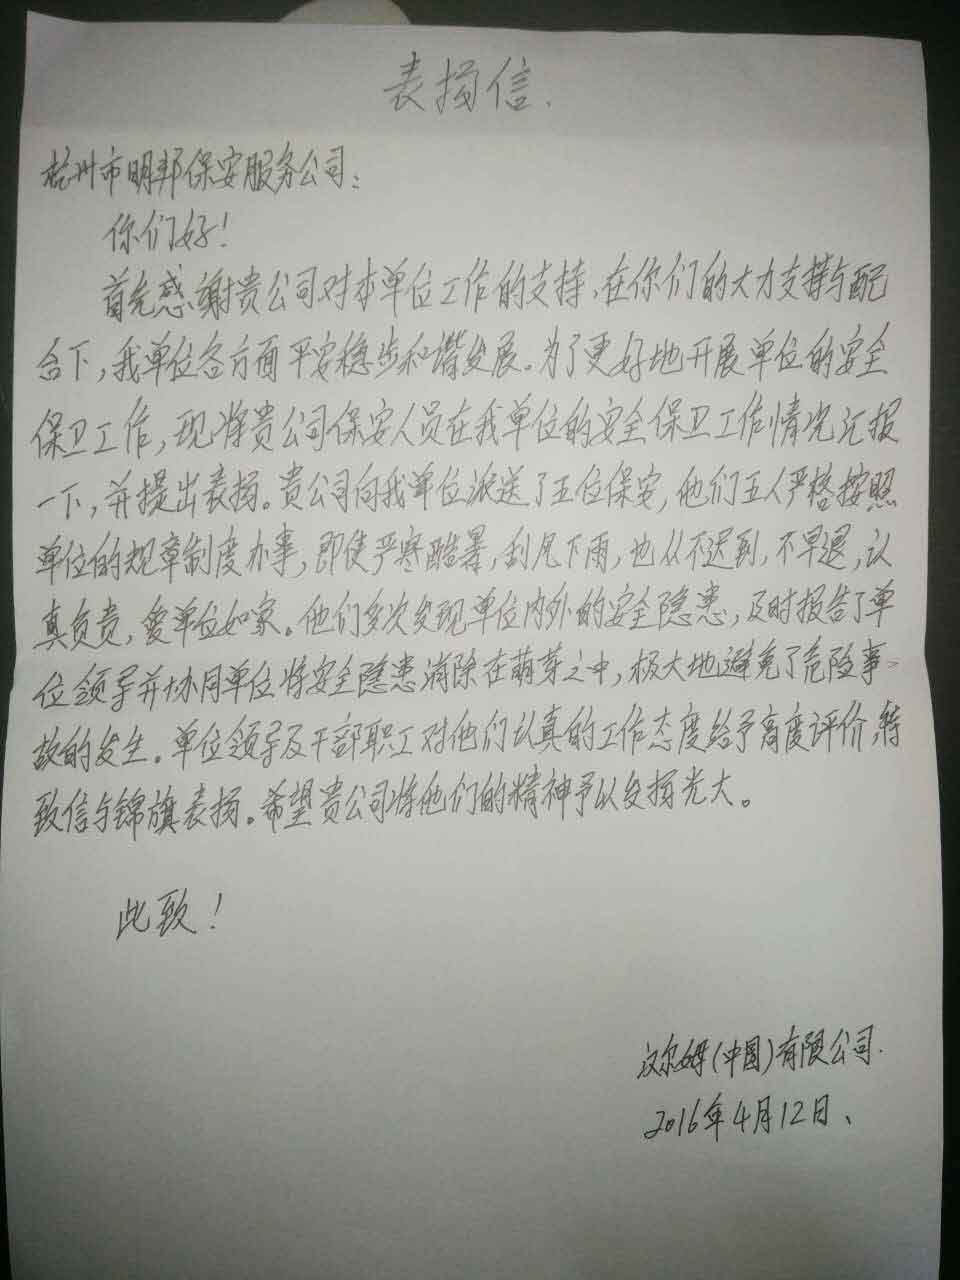 表扬信.
杭州市明邦保安服务公司:
你们好!
首先感谢贵公司对本单位工作的支持,在你们的大力支持与配
合下,我单位各方面平安稳步和谐发展。为了更好地开展单位的安全
保卫工作,现将贵公司保安人员在我单位的安全保卫工作情况汇报
一下,并提出表扬。贵公司向我单位派送了五位保安,他们五人严格按照
单位的规章制度办事,即使严寒酷暑,刮风下雨,也从不迟到,不早退,认
真负责,爱单位如家。他们多次发现单位内外的安全隐患,及时报告了单
位领导并协同单位将安全隐患消除在萌芽之中,极大地避免了危险事
故的发生。单位领导及干部职工对他们认真的工作态度给予高度评价,特
致信与锦旗表扬。希望贵公司将他们的精神予以发扬光大。
此致!
汉尔姆(中国)有限公司.
2016年4月12日、